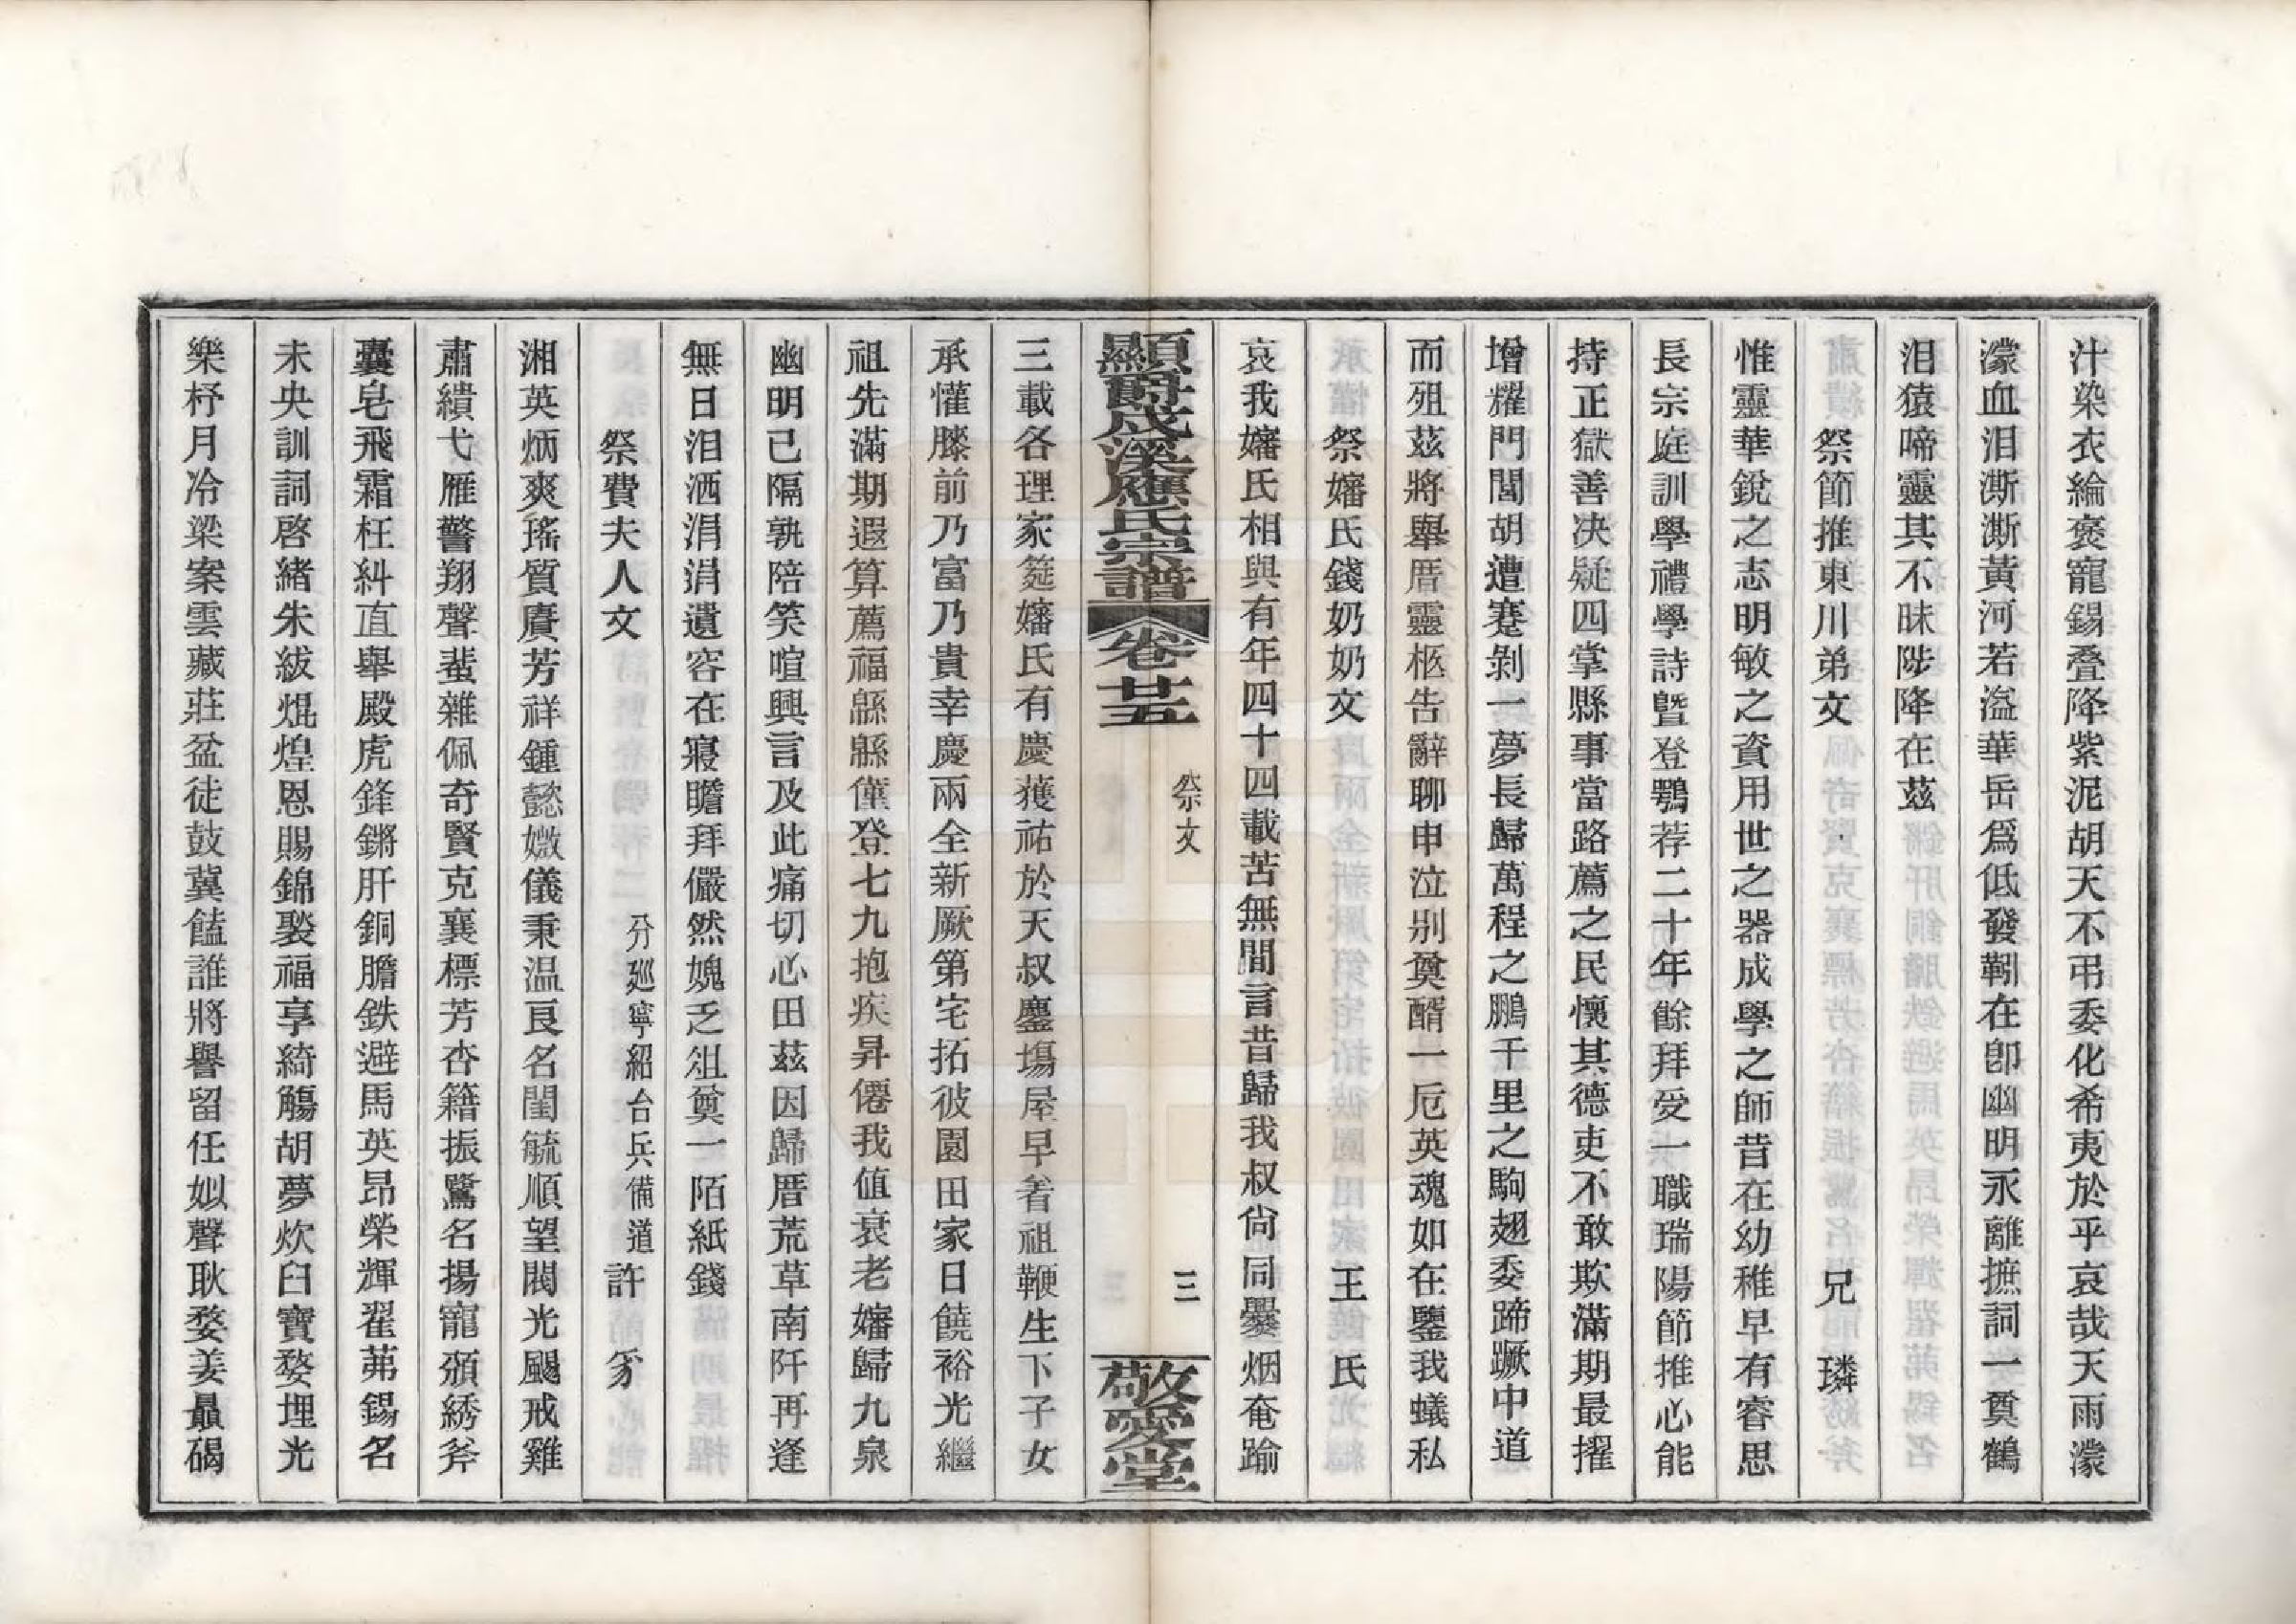 汁染衣綸褒寵錫叠降紫泥胡天不弔委化希夷於乎哀哉天雨濛
濛血泪澌澌黃河若溢華岳爲低發靷在卽幽明永離摭詞一奠鶴
泪猿啼靈其不昧陟降在茲
祭節推東川弟文 兄 璘
惟靈華銳之志明敏之資用世之器成學之師昔在幼稚早有睿思
長宗庭訓學禮學詩曁登鶚荐二十年餘拜受一職瑞陽節推心能
持正獄善决疑四掌縣事當路薦之民懷其德吏不敢欺滿期最擢
增耀門閭胡遭蹇剝一夢長歸萬程之鵬千里之駒翅委蹄蹶中道
而殂茲將舉厝靈柩告辭聊申泣別奠醑一卮英魂如在鑒我蟻私
祭嬸氏錢奶奶文 王 氏
哀我嬸氏相與有年四十四載苦無間言昔歸我叔尙同爨烟奄踰
顯爵成溪應氏宗譜 卷廿五 祭文 三 敬愛堂
三載各理家筵嬸氏有慶獲祐於天叔鏖塲屋早着祖鞭生下子女
承懽膝前乃富乃貴幸慶兩全新厥第宅拓彼園田家日饒裕光繼
祖先滿期遐算薦福緜緜僅登七九抱疾昇僊我值衰老嬸歸九泉
幽明已隔孰陪笑喧興言及此痛切心田茲因歸厝荒草南阡再逢
無日泪洒涓涓遺容在寢瞻拜儼然媿乏俎奠一陌紙錢
祭費夫人文 分廵寧紹台兵備道 許 豸
湘英炳爽瑤質賡芳祥鍾懿嫰儀秉温良名閨毓順望閥光颺戒雞
肅績弋雁警翔聲蜚雜佩奇賢克襄標芳杏籍振鷺名揚寵頒綉斧
囊皂飛霜枉糾直舉殿虎鋒鏘肝銅膽鉄避馬英昂榮輝翟茀錫名
未央訓詞啓緒朱紱焜煌恩賜錦褧福享綺觴胡夢炊臼寶婺埋光
樂杼月冷梁案雲藏莊盆徒鼓冀饁誰將譽留任姒聲耿婺姜贔碣